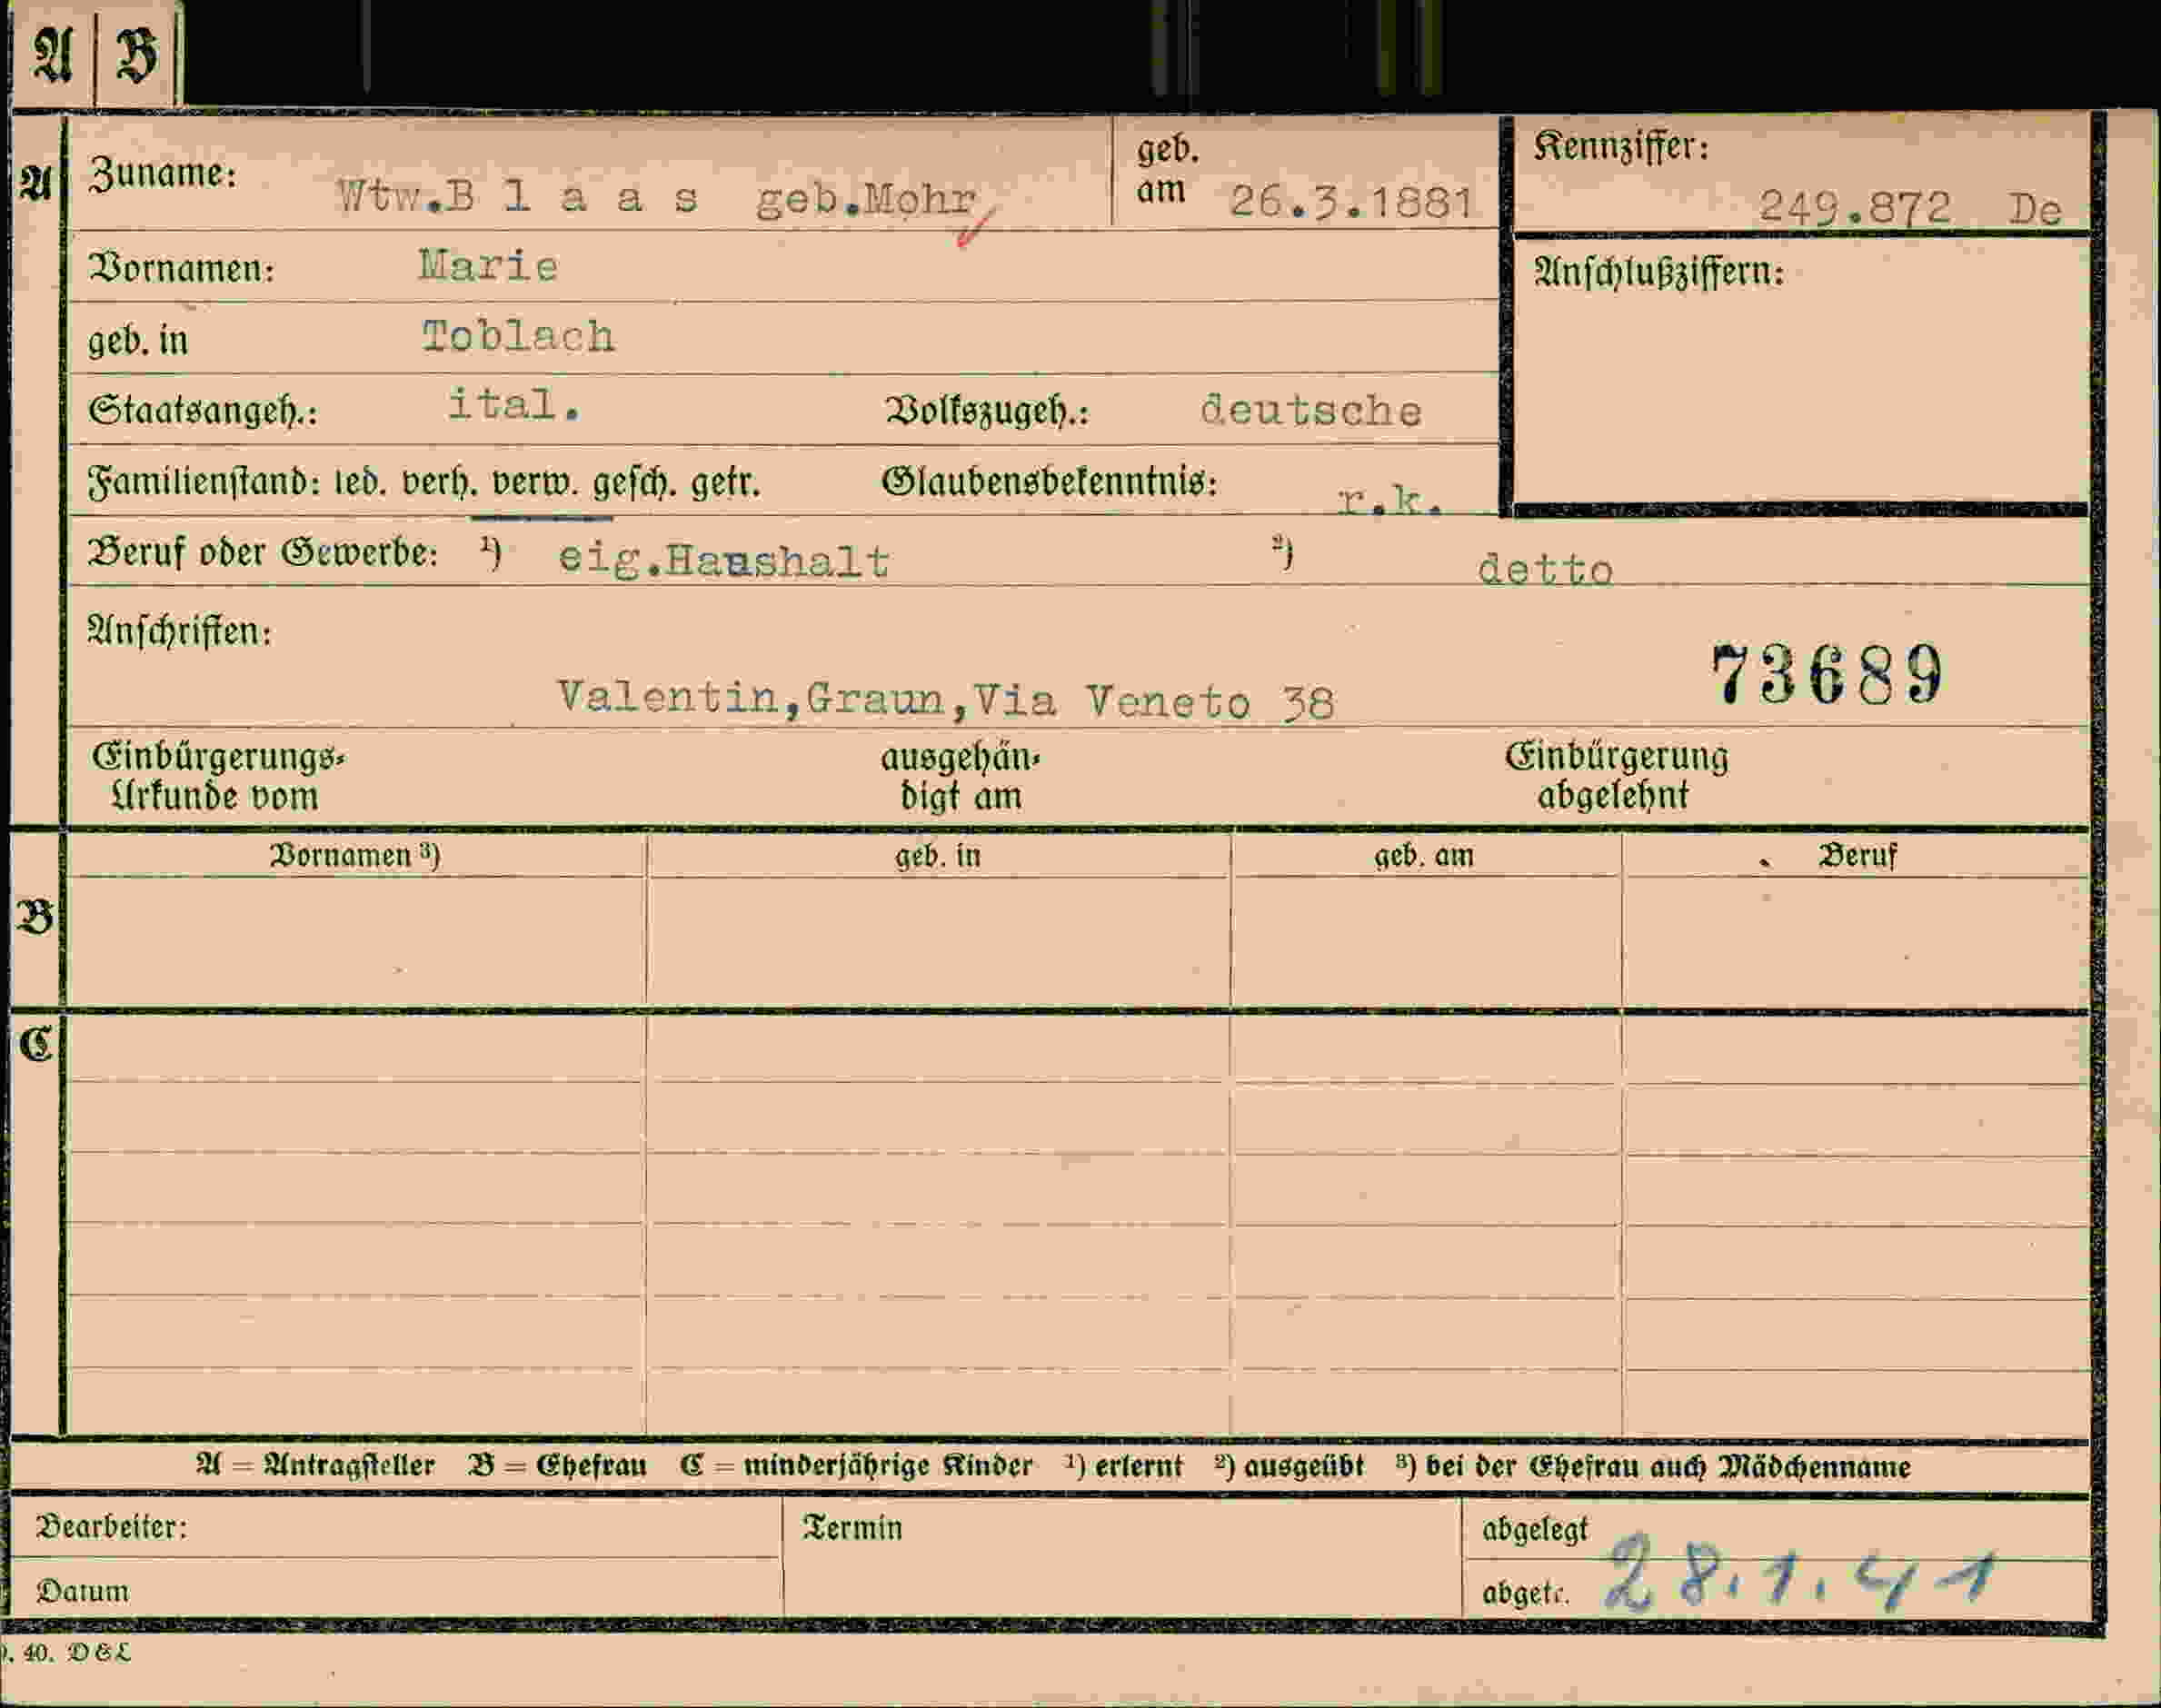 A B
A Zuname: Wtw.B l a a s geb.Mohr geb. am 26.3.1881 Kennziffer: 249.872 De
Vornamen: Marie Anschlußziffern:
geb. in Toblach
Staatsangeh.: ital. Volkszugeh.: deutsche
Familienstand: led. verh. verw. gesch. getr. Glaubensbekenntnis: r.k.
Beruf oder Gewerbe: ¹) eig.Haushalt ²) detto
Anschriften:
73689
Valentin,Graun,Via Veneto 38
Einbürgerungs- ausgehän- Einbürgerung
Urkunde vom digt am abgelehnt
Vornamen ³) geb. in geb. am Beruf
B
C
A = Antragsteller B = Ehefrau C = minderjährige Kinder ¹) erlernt ²) ausgeübt ³) bei der Ehefrau auch Mädchenname
Bearbeiter: Termin abgelegt
Datum abgetr. 28.1.41
. 40. DEL